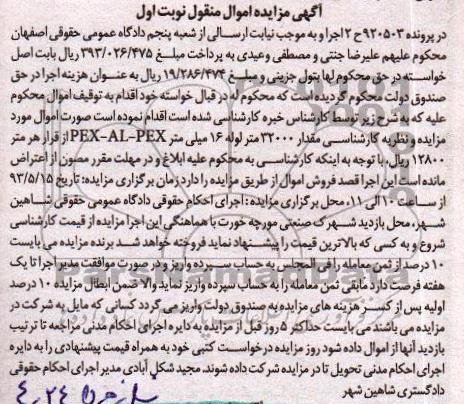 آگهی مزایده اموال منقول نوبت اول
در پرونده ۹۲۰۵۰۳ ح ۲ اجرا و به موجب نیابت ارسالی از شعبه پنجم دادگاه عمومی حقوقی اصفهان
محکوم علیهم علیرضا جنتی و مصطفی وعیدی به پرداخت مبلغ ۳۹۳/۰۲۶/۴۷۵ ریال بابت اصل
خواسته در حق محکوم لها بتول جزینی و مبلغ ۱۹/۲۸۶/۴۷۴ ریال به عنوان هزینه اجرا در حق
صندوق دولت محکوم گردیده است که محکوم له در قبال خواسته خود اقدام به توقیف اموال محکوم
علیه که به شرح زیر توسط کارشناس خبره کارشناسی شده است اقدام نموده است صورت اموال مورد
مزایده و نظریه کارشناسی مقدار ۳۲۰۰۰ متر لوله ۱۶ میلی متر PEX-AL-PEX از قرار هر متر
۱۲۸۰۰ ریال، با توجه به اینکه کارشناسی به محکوم علیه ابلاغ و در مهلت مقرر مصون از اعتراض
مانده است این اجرا قصد فروش اموال از طریق مزایده را دارد زمان برگزاری مزایده: تاریخ ۹۳/۵/۱۵
از ساعت ۱۰ الی ۱۱، محل برگزاری مزایده: اجرای احکام حقوقی دادگاه عمومی حقوقی شاهین
شهر، محل بازدید شهرک صنعتی مورچه خورت با هماهنگی این اجرا مزایده از قیمت کارشناسی
شروع و به کسی که بالاترین قیمت را پیشنهاد نماید فروخته خواهد شد برنده مزایده می بایست
۱۰ درصد از ثمن معامله را فی المجلس به حساب سپرده واریز و در صورت موافقت مدیر اجرا تا یک
هفته فرصت دارد مابقی ثمن معامله را به حساب سپرده واریز نماید والا ضمن ابطال مزایده ۱۰ درصد
اولیه پس از کسر هزینه های مزایده به صندوق دولت واریز می گردد کسانی که مایل به شرکت در
مزایده می باشند می بایست حداکثر ۵ روز قبل از مزایده به دایره اجرای احکام مدنی مراجعه تا ترتیب
بازدید آنها از اموال داده شود روز مزایده درخواست کتبی خود به همراه قیمت پیشنهادی را به دایره
اجرای احکام مدنی تحویل تا در مزایده شرکت داده شوند. مجید شکل آبادی مدیر اجرای احکام حقوقی
دادگستری شاهین شهر
۴.۲۴